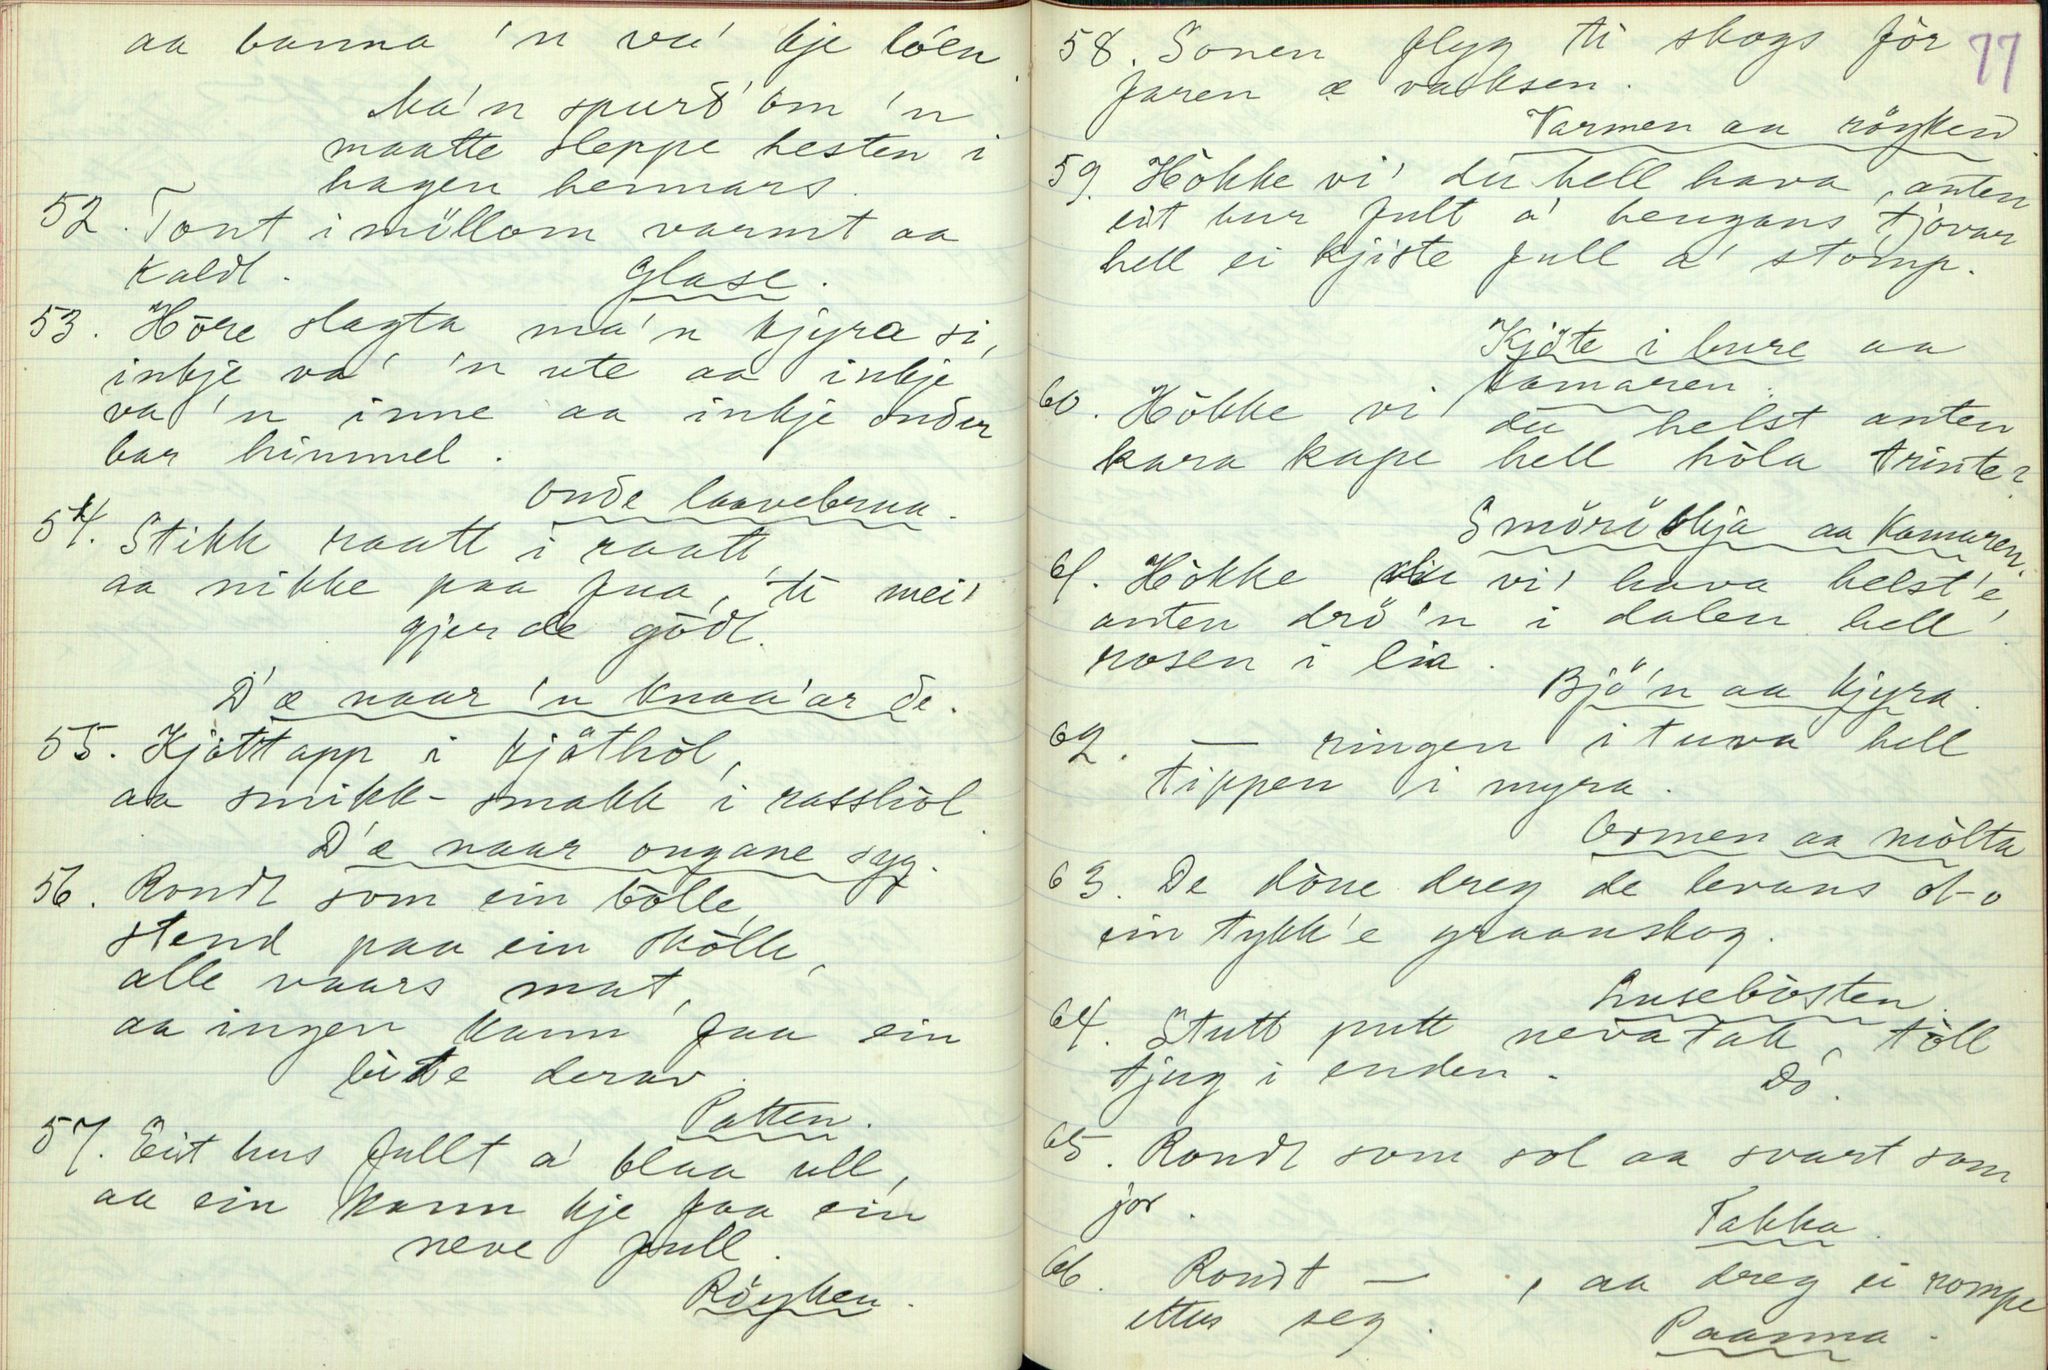 aa banna 'n va' kje lóen.
ha'n spurd' om 'n
maatte sleppe hesten i
hagen hennars.
52. Tont imillom varmt aa
kaldt.
Glase.
53. Höre slagta ma'n kjyra si,
inkje va' 'n ute aa inkje
va 'n inne aa inkje onder
bar himmel.
Onde laavebrua.
54. Stikk raatt i raatt,
aa nikke paa fua, 'ti mei'
gjerde gödt.
D'æ naar 'n knaa'ar de.
55. Kjöttapp i kjöthòl,
aa smikk-smakk i rasshòl.
D'æ naar ongane syg.
56. Rondt som ein bölle,
stend paa ein skölle,
alle vaars mat,
aa ingen kann faa ein
bite derav.
Patten.
57. Eit hus fullt a' blaa ull,
aa ein kann kje faa ein
neve full.
Röyken.
77
58. Sonen flyg ti skogsför
faren æ vaksen.
Varmen aa röyken.
59. Hökke vi' du hell hava, anten
eit bur fult a' hengans tjovar
hell ei kjiste full a' stomp.
Kjöte i bure aa
kamaren.
60. Hökke vi du helst anten
kara kape hell höla trinte?
Smöröskja aa Kamaren.
61. Hökke vi' hava helst'e,
anten drö'n i dalen hell'
rosen i lia.
Bjö'n aa kjyra.
62. — ringen i tuva hell
tippen i myra.
Ormen aa mölta
63. De döue dreg de levans ot-o
ein tykk'e graanskog.
Lusebösten.
64. Stutt putt nevatak, töll
tjug i enden.
Dö.
65. Rondt som sol aa svart som
jor.
Takka.
66. Rondt — , aa dreg ei rompe
ettus seg.
Paanna.